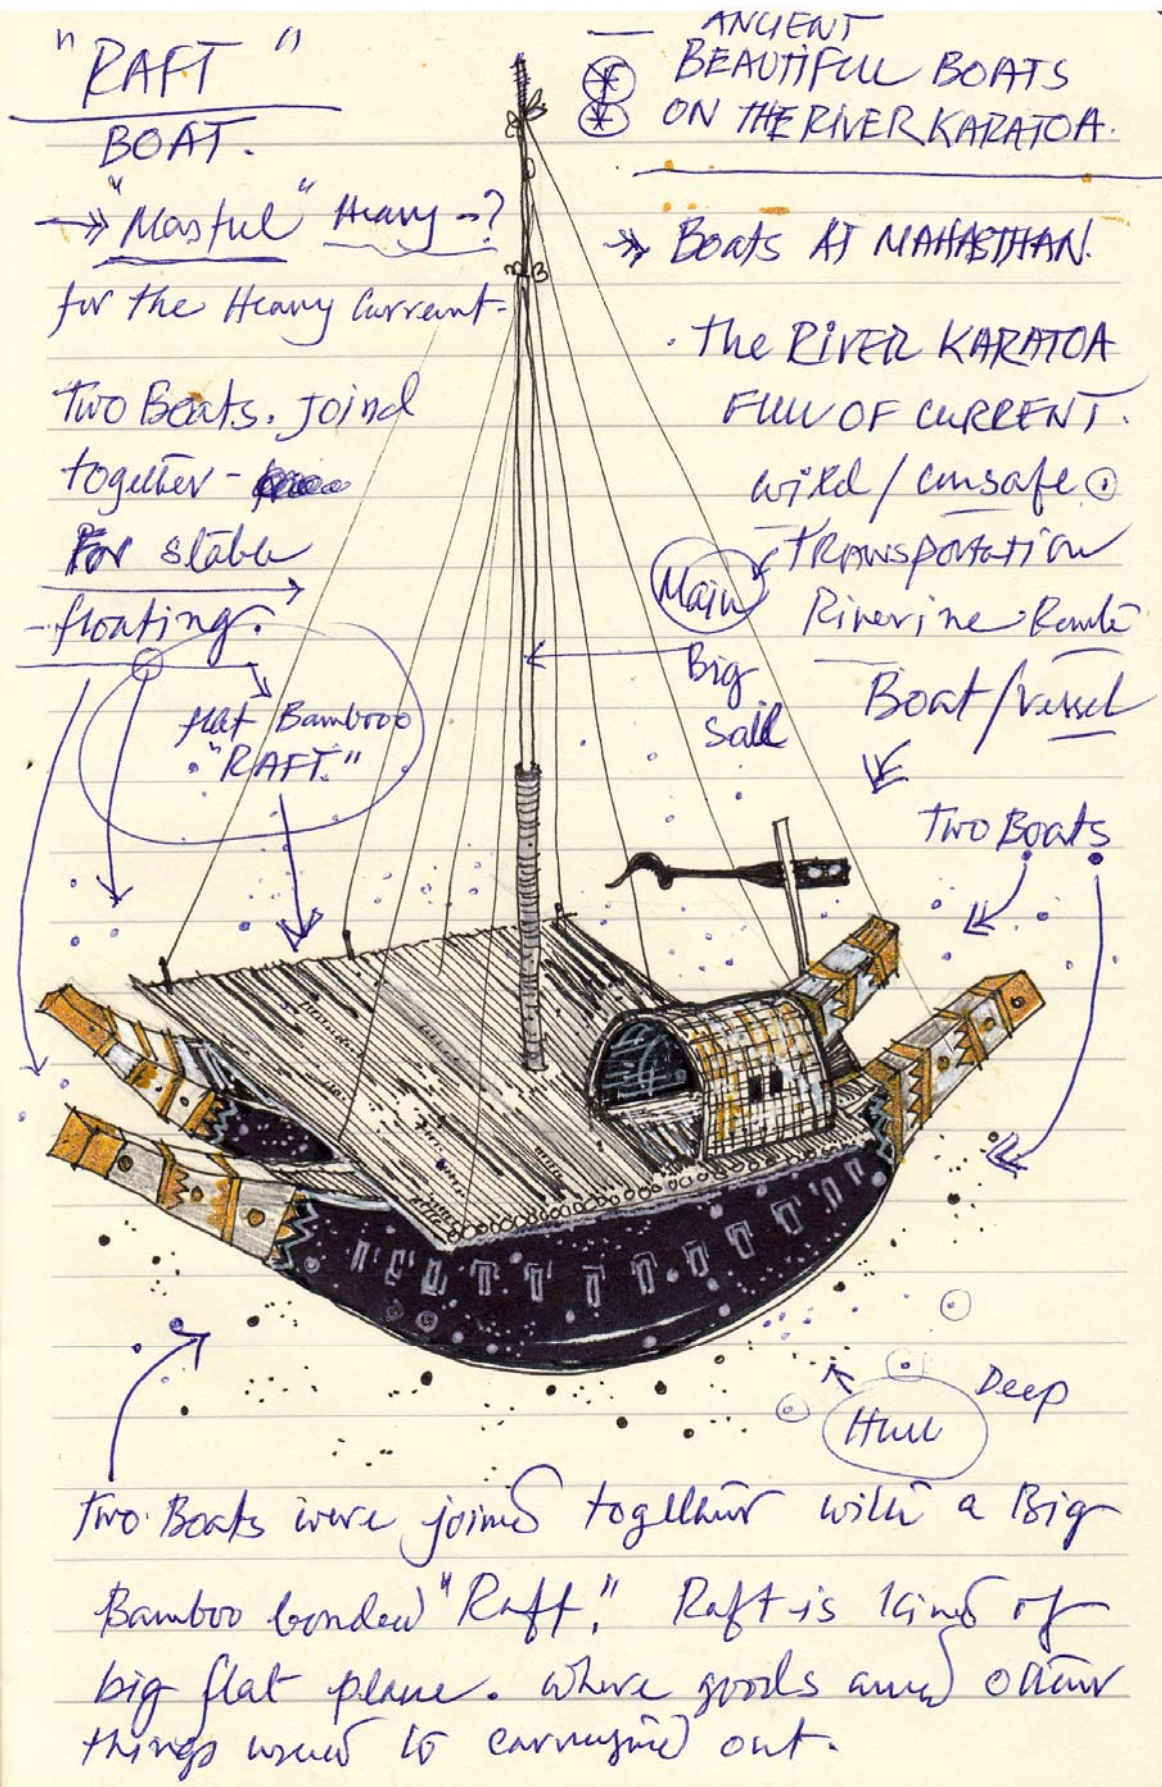 "RAFT"
BOAT.
"Mastul" Heavy -?
for the Heavy Current -
Two Boats. Joind
together -
For stable
- floating.
flat Bambooo
"RAFT."
— ANCIENT
BEAUTIFULL BOATS
ON THE RIVER KARATOA.
Boats AT MAHASTHAN.
. The RIVER KARATOA
FULL OF CURRENT.
wild / unsafe
Main
TRANSPORTATION
Riverine Route
Big
Sail
Boat/vessel
Two Boats
Deep
Hull
Two Boats were joined together with a Big
Bamboo bonded "Raft." Raft is kind of
big flat plane. where goods and other
things used to carrying out.